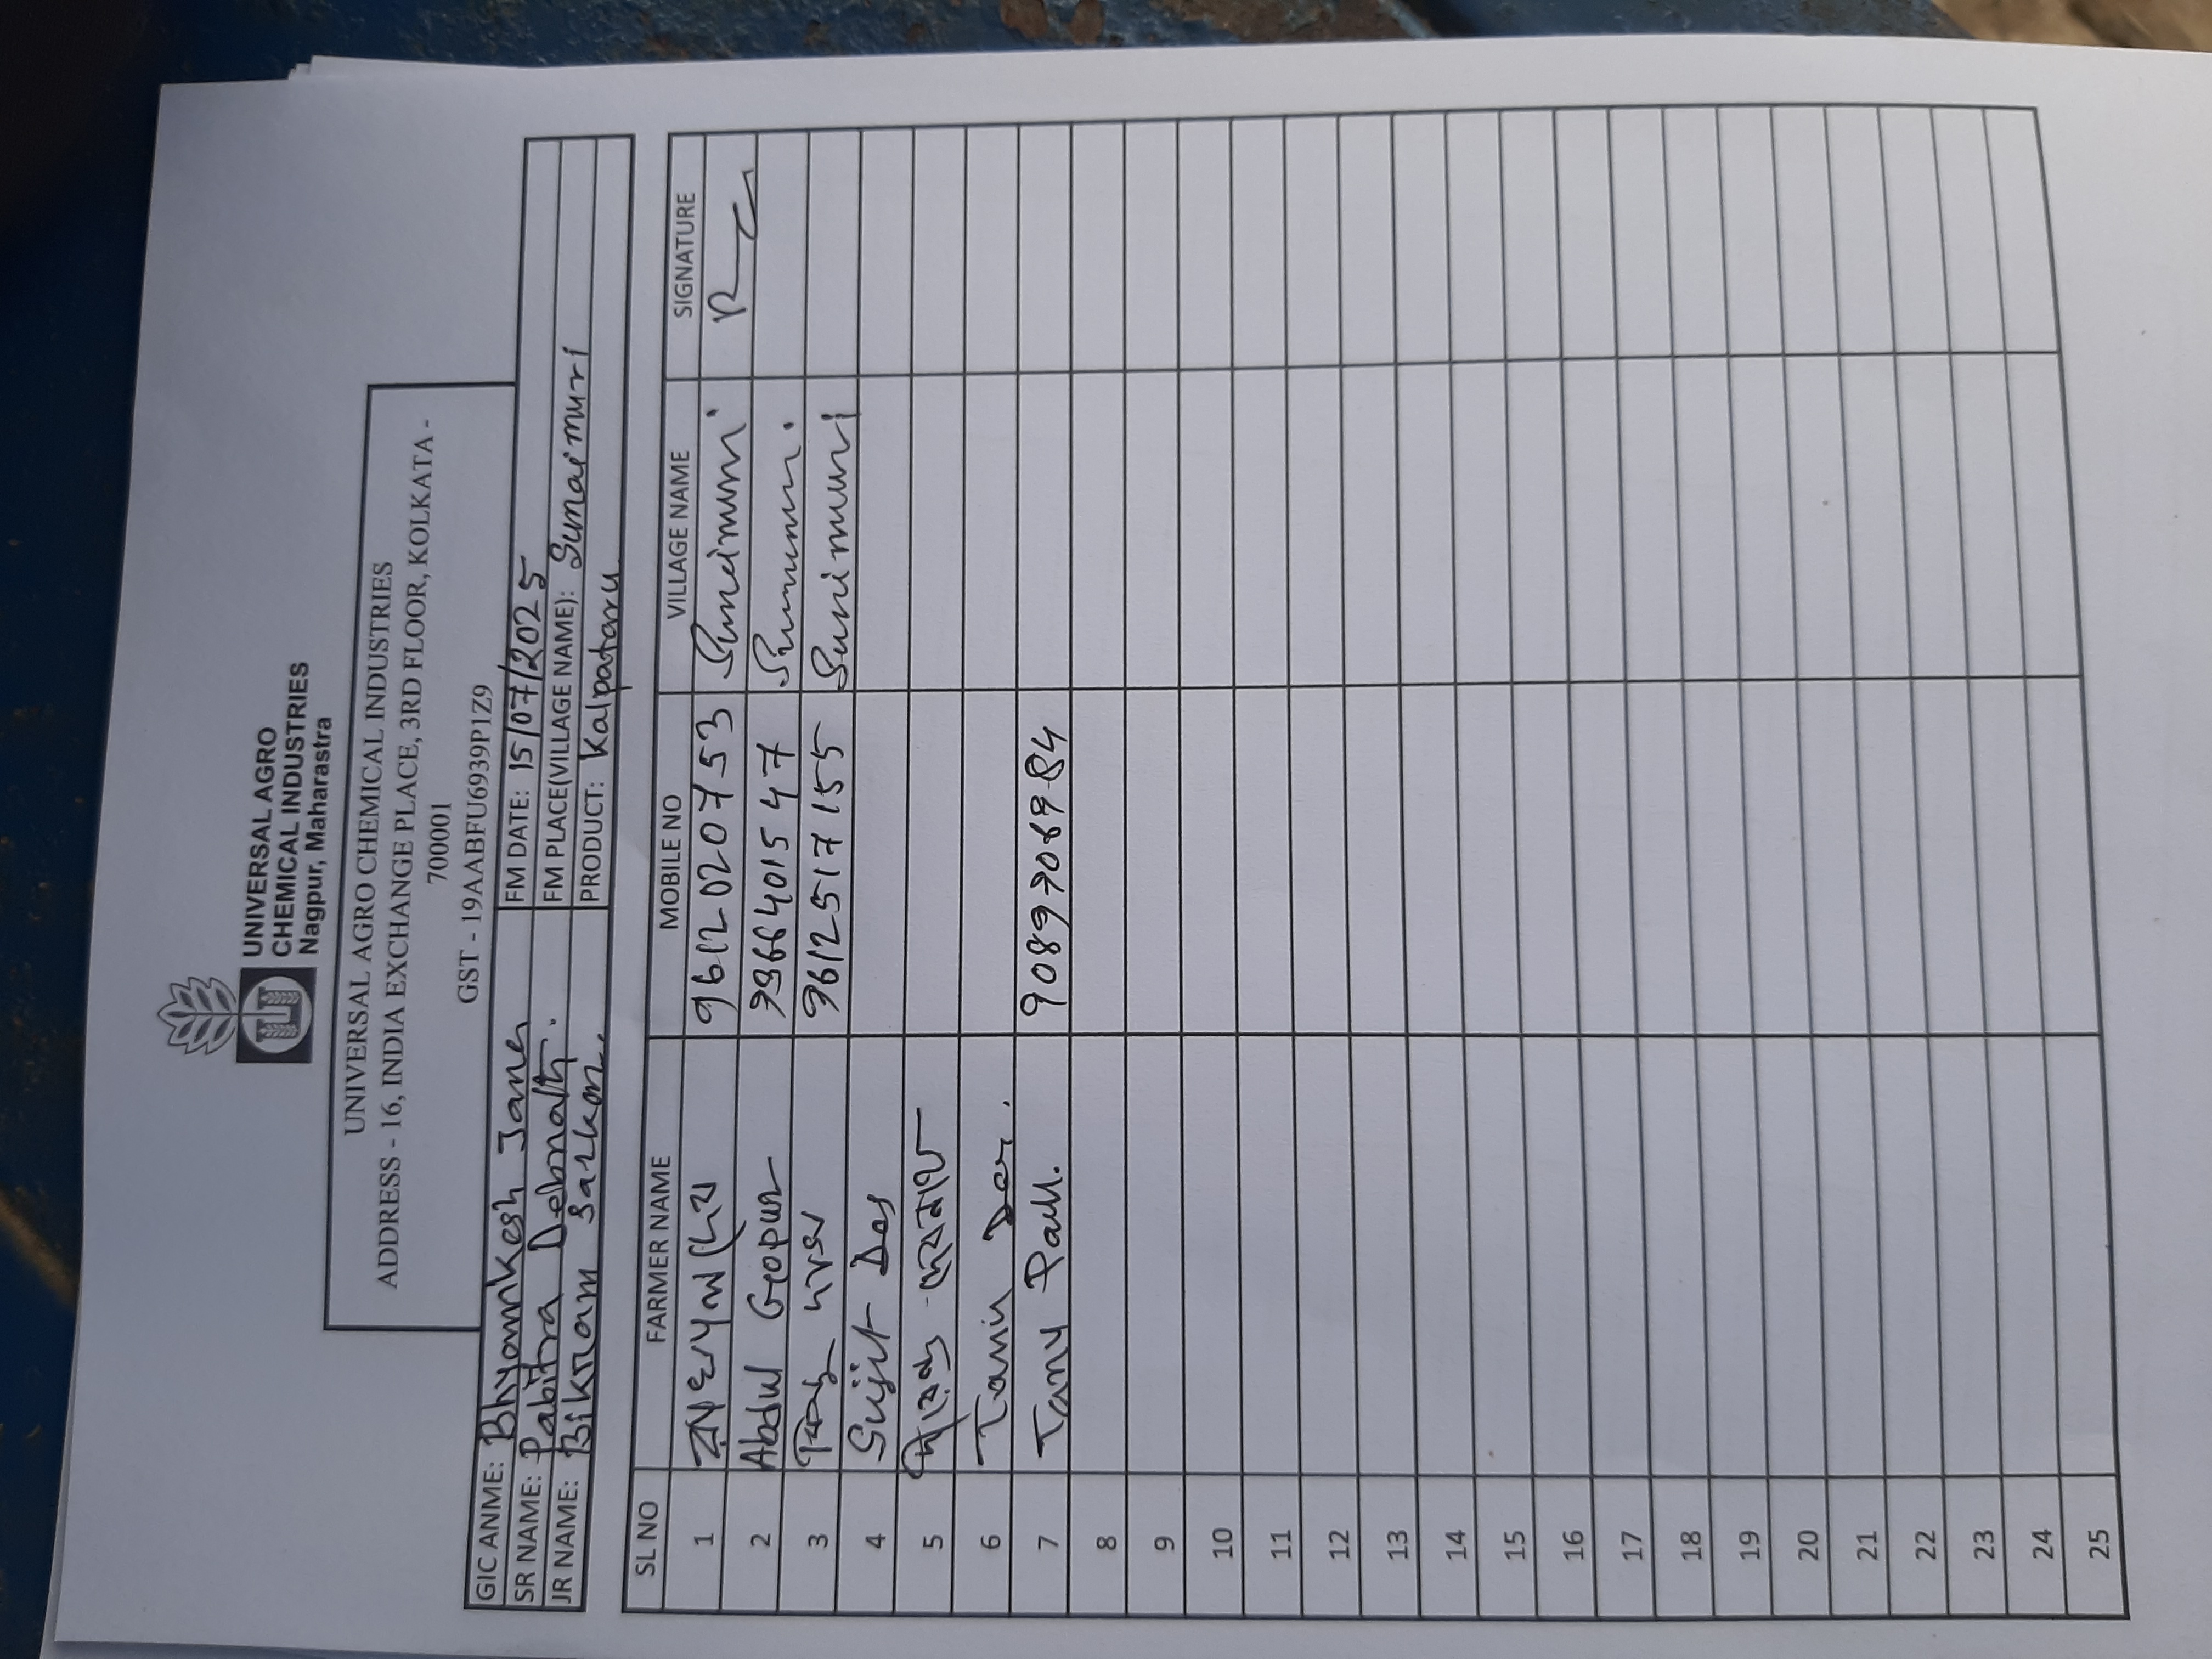 UNIVERSAL AGRO
CHEMICAL INDUSTRIES
Nagpur, Maharastra
UNIVERSAL AGRO CHEMICAL INDUSTRIES
ADDRESS - 16, INDIA EXCHANGE PLACE, 3RD FLOOR, KOLKATA -
700001
GST - 19AABFU6939P1Z9
GIC ANME: Bhyomkesh Jana FM DATE: 15/07/2025
SR NAME: Pabitra Debnath. FM PLACE(VILLAGE NAME): Sunaimuri
JR NAME: Bikram Sarkar. PRODUCT: Kalpataru
SL NO FARMER NAME MOBILE NO VILLAGE NAME SIGNATURE
1 9612020753
2 Abdul Gopur
3 9612517155 Sunimuri
4 Sujit Das
5
6
7 Tany Paul.
8
9
10
11
12
13
14
15
16
17
18
19
20
21
22
23
24
25